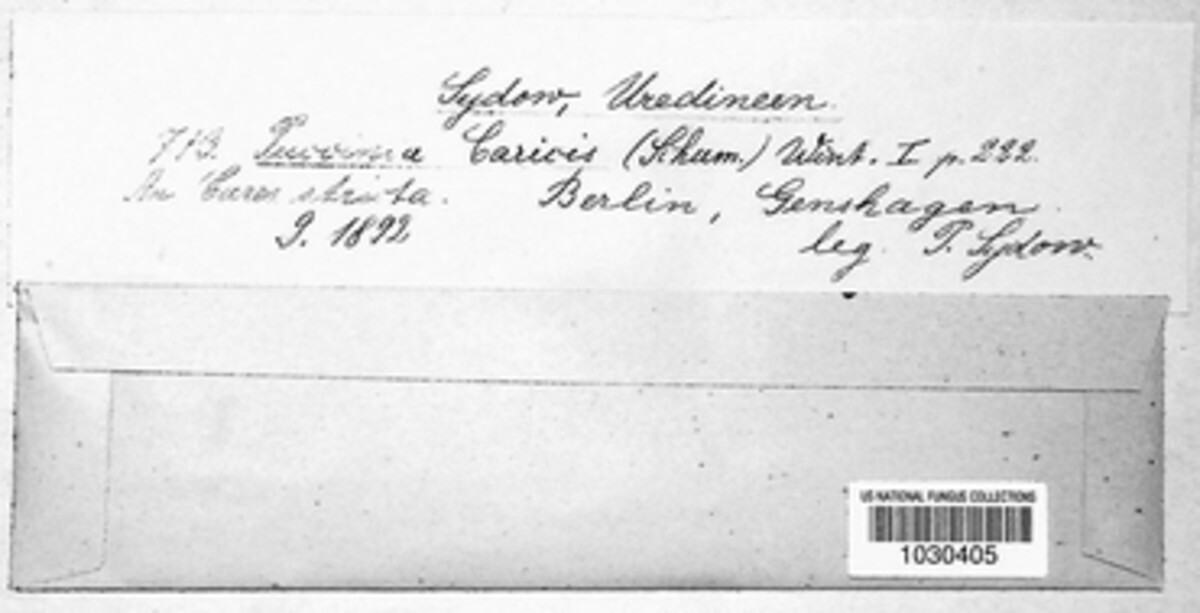 Sydow, Uredineen.
713. Puccinia Caricis (Schum.) Wint. I p. 222.
An Carex stricta. Berlin, Genshagen.
9. 1892 leg. P. Sydow.
US NATIONAL FUNGUS COLLECTIONS
1030405